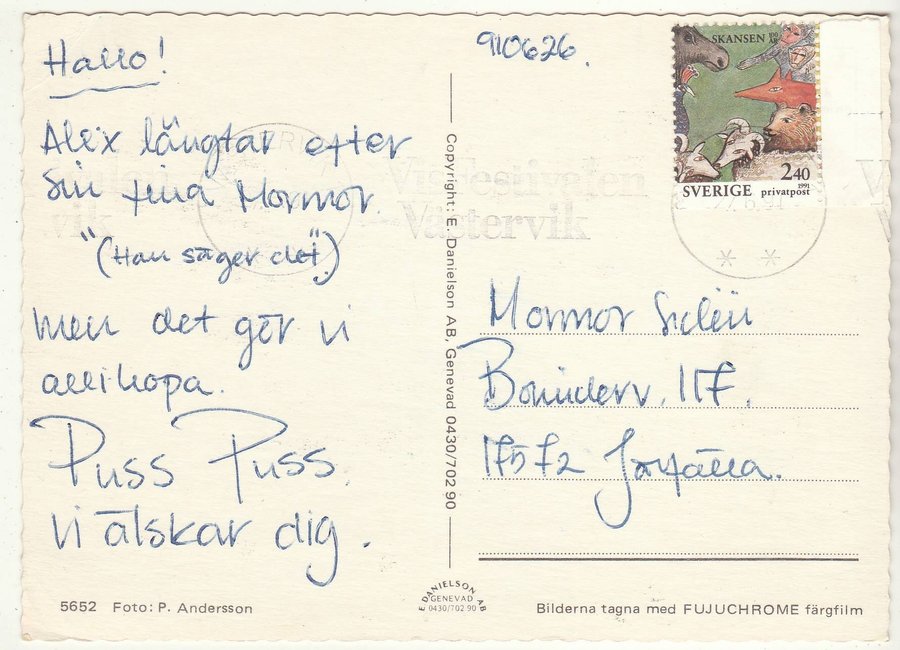 Hallo!
Alex längtar efter
sin fina Mormor
"(Han säger det")
men det gör vi
allihopa.
Puss Puss.
Vi älskar dig.
5652 Foto: P. Andersson
Copyright: E. Danielson AB, Genevad 0430/702 90
E. DANIELSON AB
GENEVAD
0430/702 90
910626.
SKANSEN 100 ÅR
2.40
1991
SVERIGE privatpost
Visfestivalen
Västervik
vik
Mormor
175 72 Järfälla.
Bilderna tagna med FUJUCHROME färgfilm